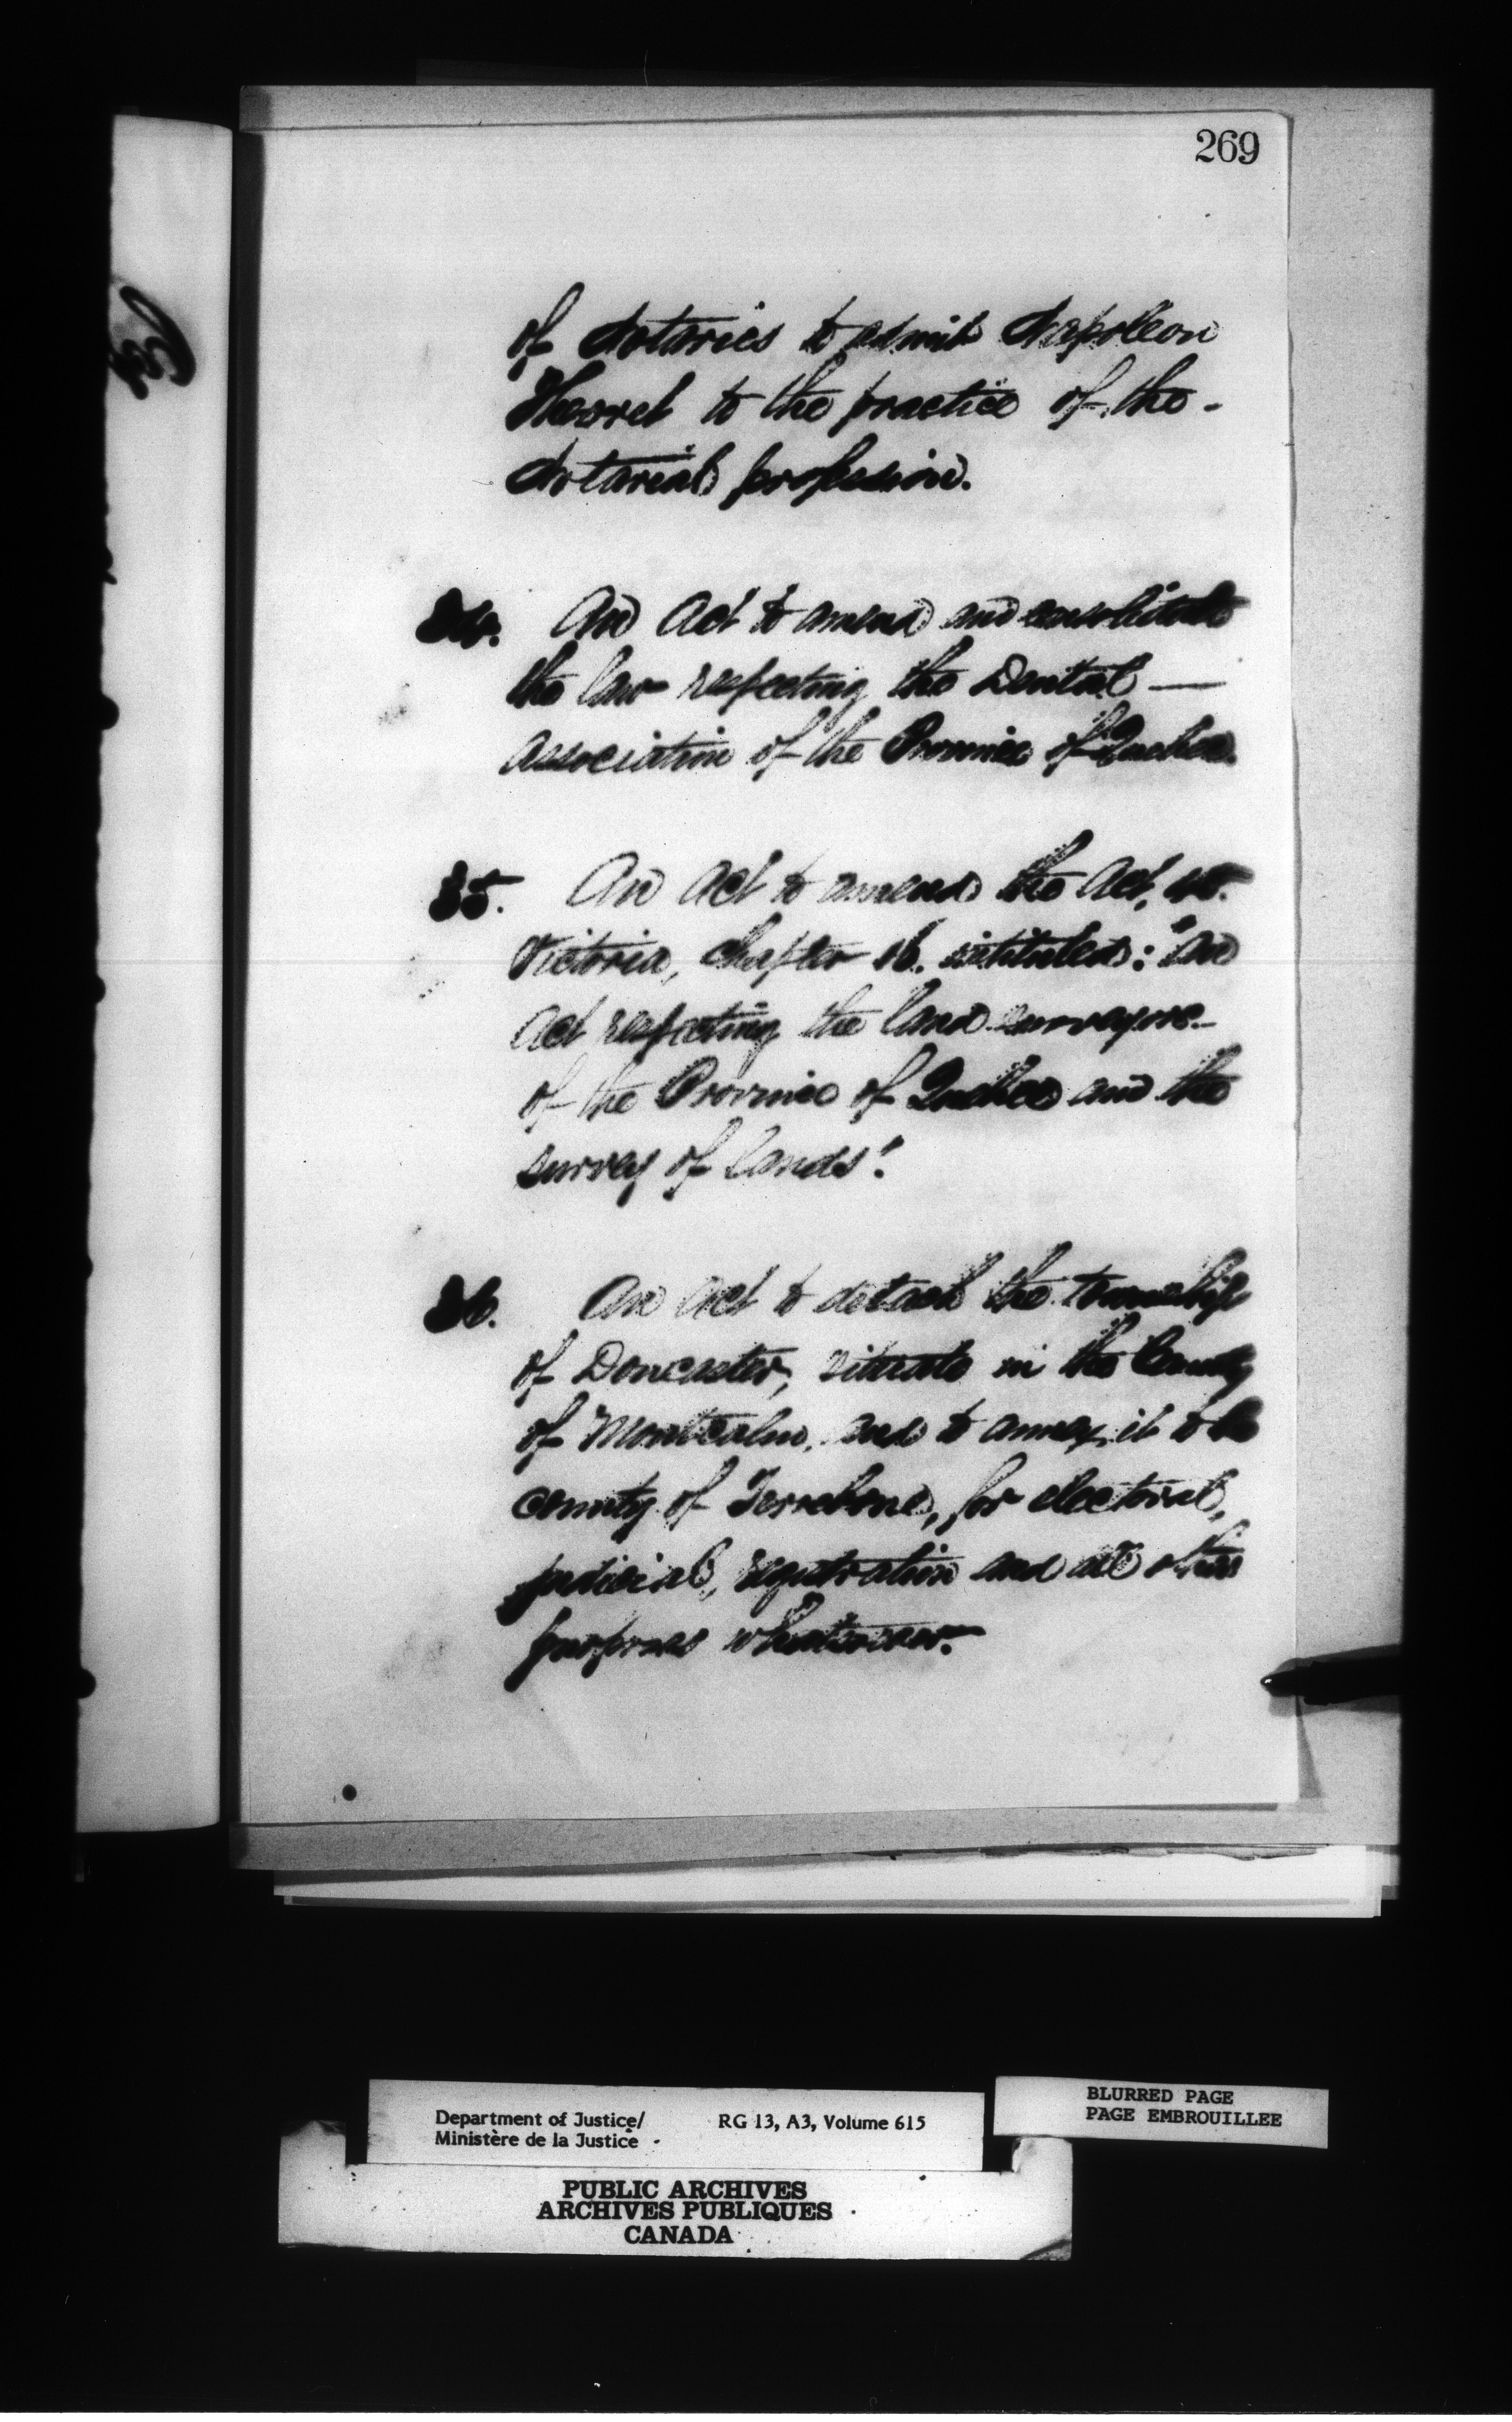 269
of Notaries to admit Napoleon
to the practice of the -
Notarial profession.
34. An Act to amend and consolidate
the law respecting the Dental —
Association of the Province of Quebec.
35. An Act to amend the Act, 45.
Victoria, chapter 16. intituled: "An
Act respecting the land surveyors
of the Province of Quebec and the
survey of lands".
36. An Act to detach the township
of Doncaster, situate in the County
of Montcalm, and to annex it to the
county of Terrebone, for electoral,
judicial, registration and all other
purposes whatsoever.
Department of Justice/ RG 13, A3, Volume 615
Ministère de la Justice
BLURRED PAGE
PAGE EMBROUILLEE
PUBLIC ARCHIVES
ARCHIVES PUBLIQUES
CANADA